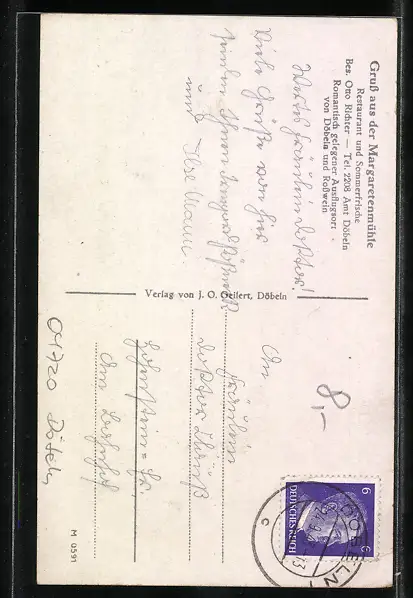 Gruß aus der Margaretenmühle
Restaurant und Sommerfrische
Bes. Otto Richter — Tel. 2208 Amt Döbeln
Romantisch gelegener Ausflugsort
von Döbeln und Roßwein
Wertes Fräulein Doktor!
Viele Grüße von hier
senden Ihnen
und Ilse Mann.
Verlag von J. G. Geilert, Döbeln
8,-
An
Fräulein
Doktor
Am Bahnhof
04720 Döbeln
M 0591
6
DEUTSCHES REICH
DÖBELN
c